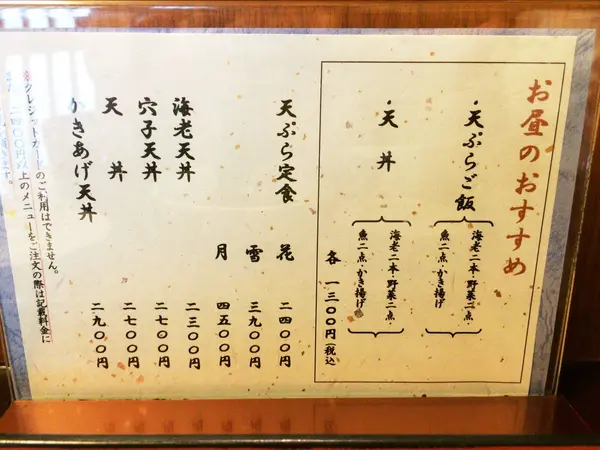 お昼のおすすめ
・天ぷらご飯
海老二本・野菜二点・
魚二点・かき揚げ
・天丼
海老二本・野菜二点・
魚二点・かき揚げ
各 一三〇〇円(税込
天ぷら定食 花 二四〇〇円
雪 三九〇〇円
月 四五〇〇円
海老天丼 二三〇〇円
穴子天丼 二七〇〇円
天丼 二七〇〇円
かきあげ天丼 二九〇〇円
※クレジットカードのご利用はできません。
二四〇〇円以上のメニューをご注文の際は記載料金に